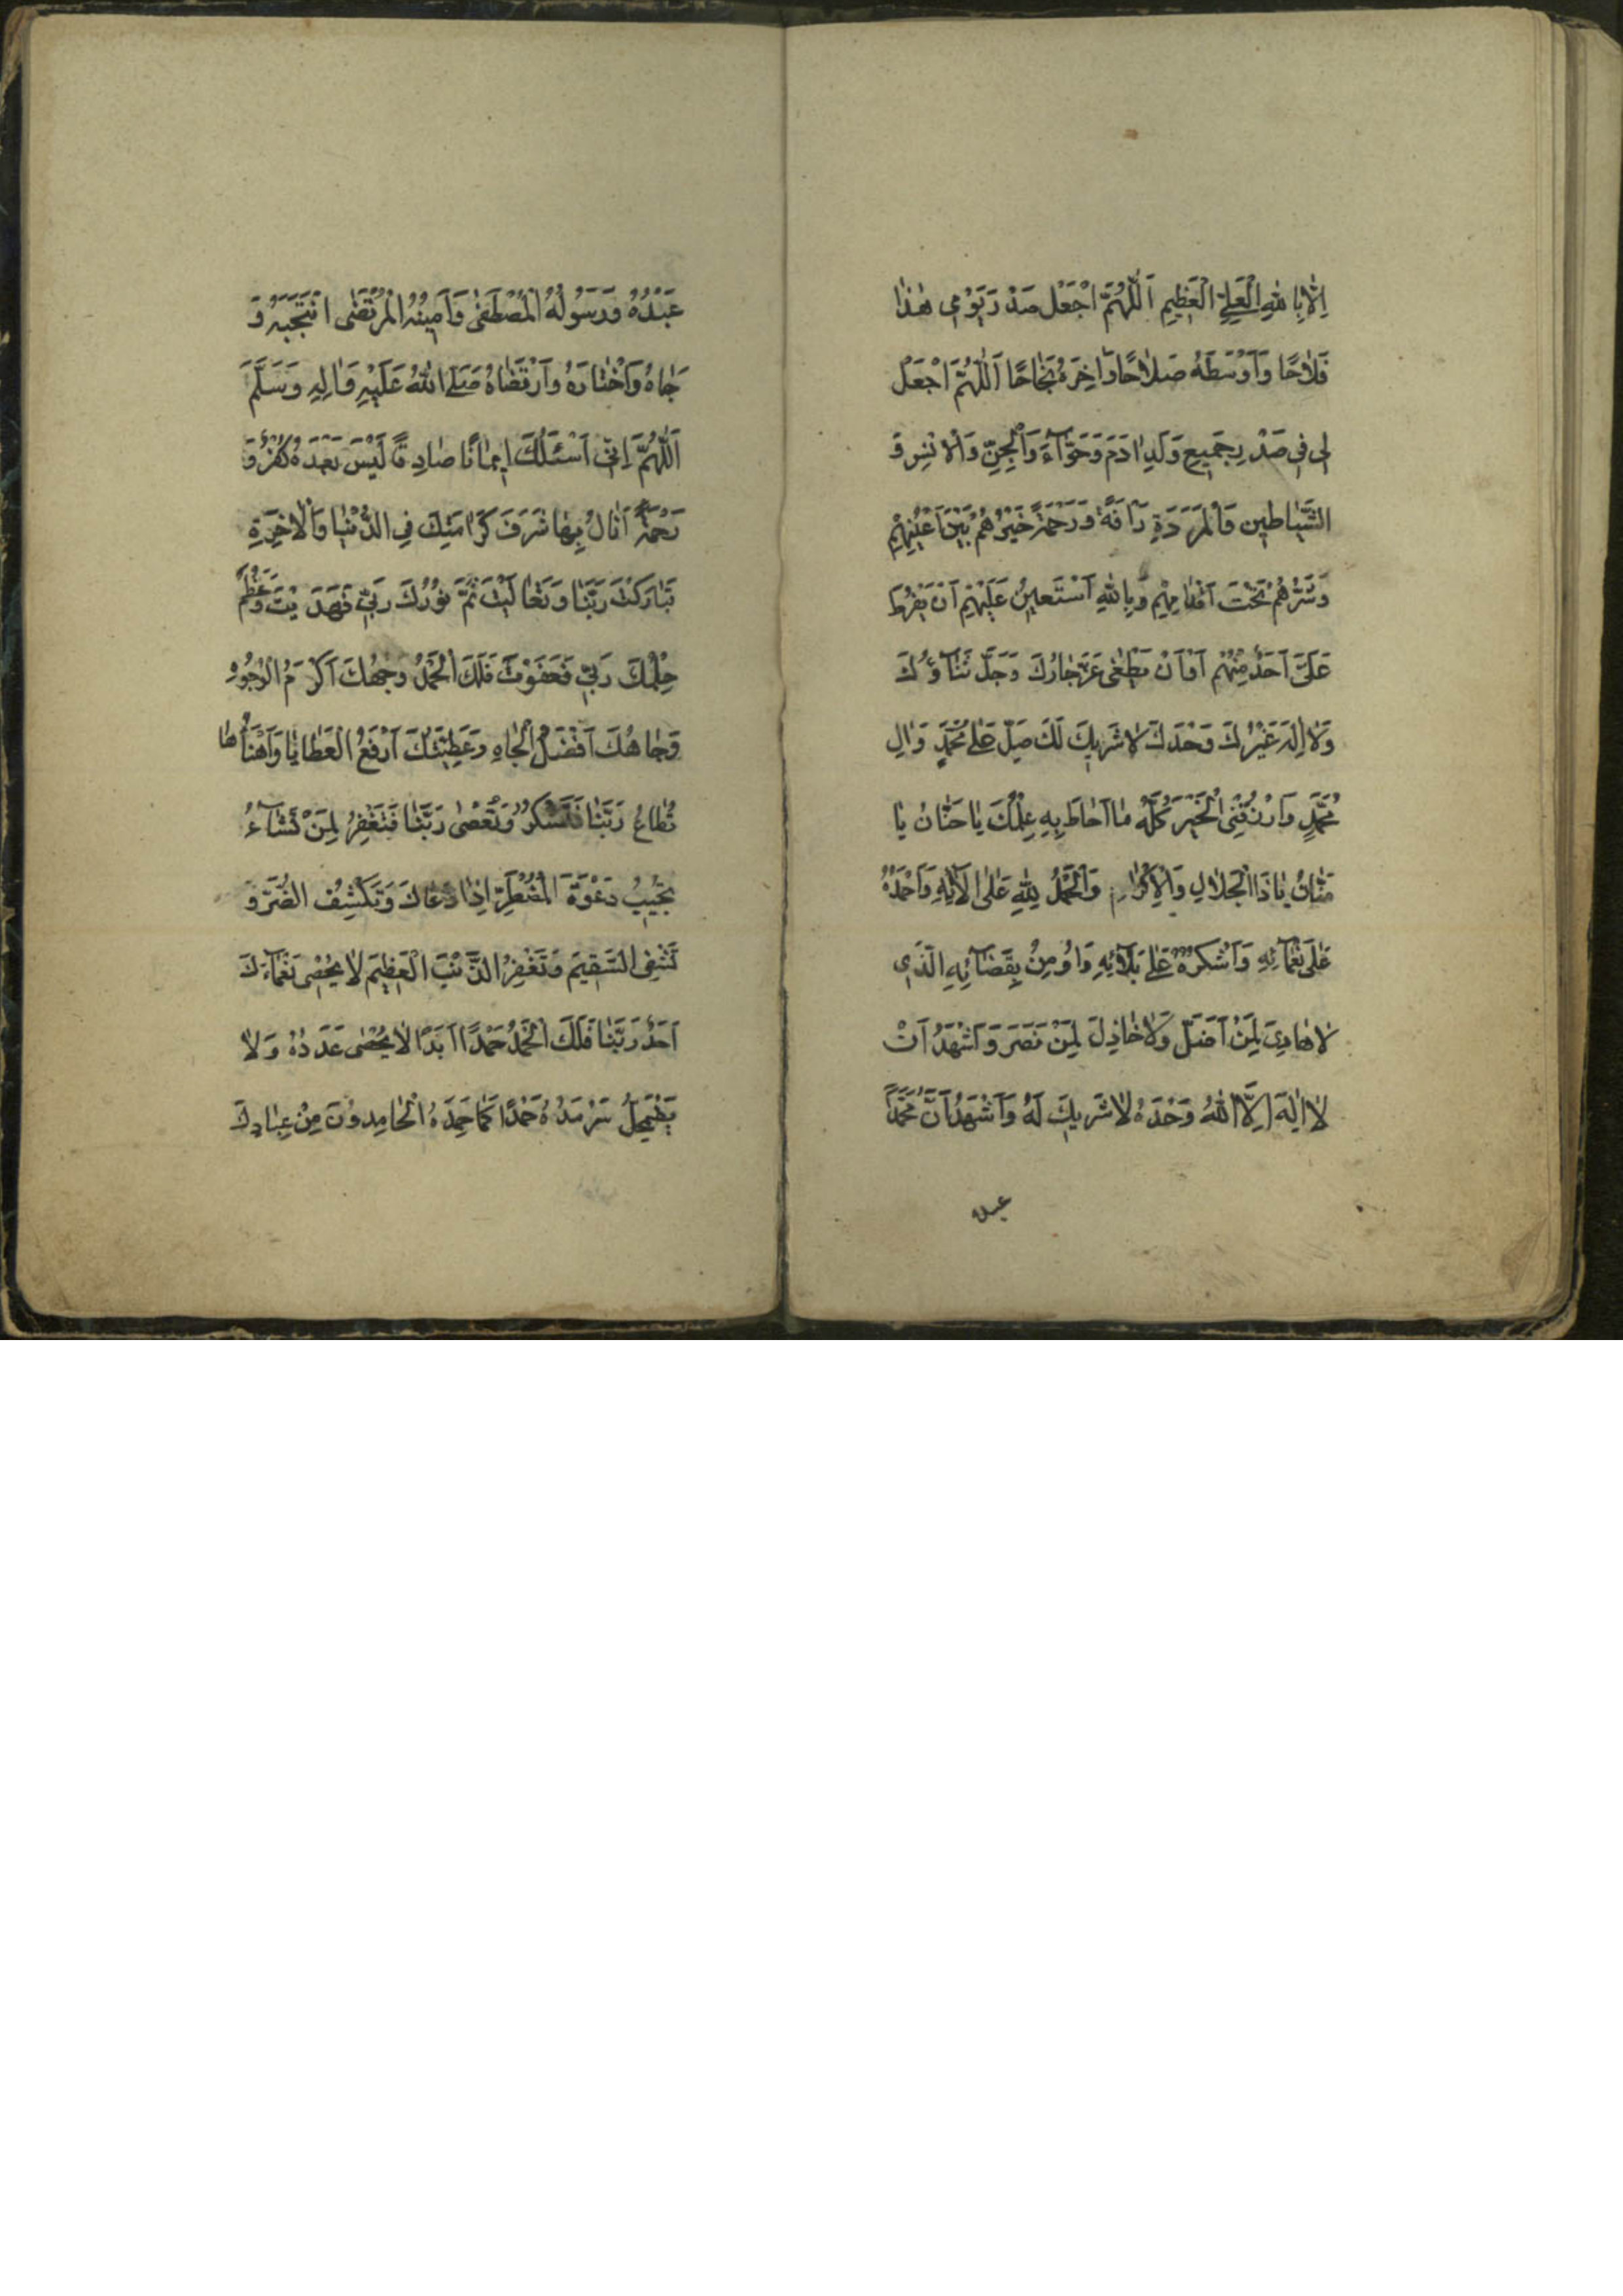 اِلّا بِاللهِ الْعَلِيِّ الْعَظِيمِ اَللّٰهُمَّ اجْعَلْ صَدْرَ يَوْمِي هٰذٰا
فَلاٰحًا وَاَوْسَطَهُ صَلاٰحًا وَاٰخِرَهُ نَجٰاحًا اَللّٰهُمَّ اجْعَلْ
لِى فِى صَدْرِ جَمِيعِ وَلَدِ اٰدَمَ وَحَوّآءَ وَالْجِنِّ وَالْاِنْسِ وَ
الشَّيٰاطِينِ وَالْمَرَدَةِ رَأفَةً وَرَحْمَةً خَيْرُهُمْ بَيْنَ اَعْيُنِهِمْ
وَشَرُّهُمْ تَحْتَ اَقْدٰامِهِمْ وَبِاللهِ اَسْتَعِينُ عَلَيْهِمْ اَنْ يَفْرُطَ
عَلَىَّ اَحَدٌ مِنْهُمْ اَوْ اَنْ يَطْغٰى عَزَّ جٰارُكَ وَجَلَّ ثَنٰآؤُكَ
وَلاٰ اِلٰهَ غَيْرُكَ وَحْدَكَ لاٰ شَرِيكَ لَكَ صَلِّ عَلٰى مُحَمَّدٍ وَاٰلِ
مُحَمَّدٍ وَارْزُقْنِى الْخَيْرَ كُلَّهُ مٰا اَحٰاطَ بِهِ عِلْمُكَ يٰا حَنّٰانُ يٰا
مَنّٰانُ يٰا ذَا الْجَلاٰلِ وَالْاِكْرٰامِ وَالْحَمْدُ لِلّٰهِ عَلٰى اٰلاٰئِهِ وَاَحْمَدُهُ
عَلٰى نَعْمٰآئِهِ وَاَشْكُرُهُ عَلٰى بَلاٰئِهِ وَاُومِنُ بِقَضٰآئِهِ الَّذِى
لاٰ هٰادِىَ لِمَنْ اَضَلَّ وَلاٰ خٰاذِلَ لِمَنْ نَصَرَ وَاَشْهَدُ اَنْ
لاٰ اِلٰهَ اِلَّا اللهُ وَحْدَهُ لاٰ شَرِيكَ لَهُ وَاَشْهَدُ اَنَّ مُحَمَّدًا
عبده
عَبْدُهُ وَرَسُولُهُ الْمُصْطَفٰى وَاَمِينُهُ الْمُرْتَضٰى انْتَجَبَهُ وَ
حَبٰاهُ وَاخْتٰارَهُ وَارْتَضٰاهُ صَلَّى اللهُ عَلَيْهِ وَاٰلِهِ وَسَلَّمَ
اَللّٰهُمَّ اِنِّى اَسْئَلُكَ اِيمٰانًا صٰادِقًا لَيْسَ بَعْدَهُ كُفْرٌ وَ
رَحْمَةً اَنٰالُ بِهٰا شَرَفَ كَرٰامَتِكَ فِى الدُّنْيٰا وَالْاٰخِرَةِ
تَبٰارَكْتَ رَبَّنٰا وَتَعٰالَيْتَ تَمَّ نُورُكَ رَبِّى فَهَدَيْتَ وَعَظُمَ
حِلْمُكَ رَبِّى فَعَفَوْتَ فَلَكَ الْحَمْدُ وَجْهُكَ اَكْرَمُ الْوُجُوهِ
وَجٰاهُكَ اَفْضَلُ الْجٰاهِ وَعَطِيَّتُكَ اَرْفَعُ الْعَطٰايٰا وَاَهْنَأُهٰا
تُطٰاعُ رَبَّنٰا فَتَشْكُرُ وَتُعْصٰى رَبَّنٰا فَتَغْفِرُ لِمَنْ تَشٰآءُ
تُجِيبُ دَعْوَةَ الْمُضْطَرِّ اِذٰا دَعٰاكَ وَتَكْشِفُ الضُّرَّ وَ
تَشْفِى السَّقِيمَ وَتَغْفِرُ الذَّنْبَ الْعَظِيمَ لاٰ يُحْصِى نَعْمٰآءَكَ
اَحَدٌ رَبَّنٰا فَلَكَ الْحَمْدُ حَمْدًا اَبَدًا لاٰ يُحْصٰى عَدَدُهُ وَلاٰ
يَضْمَحِلُّ سَرْمَدُهُ حَمْدًا كَمٰا حَمِدَهُ الْحٰامِدُونَ مِنْ عِبٰادِكَ